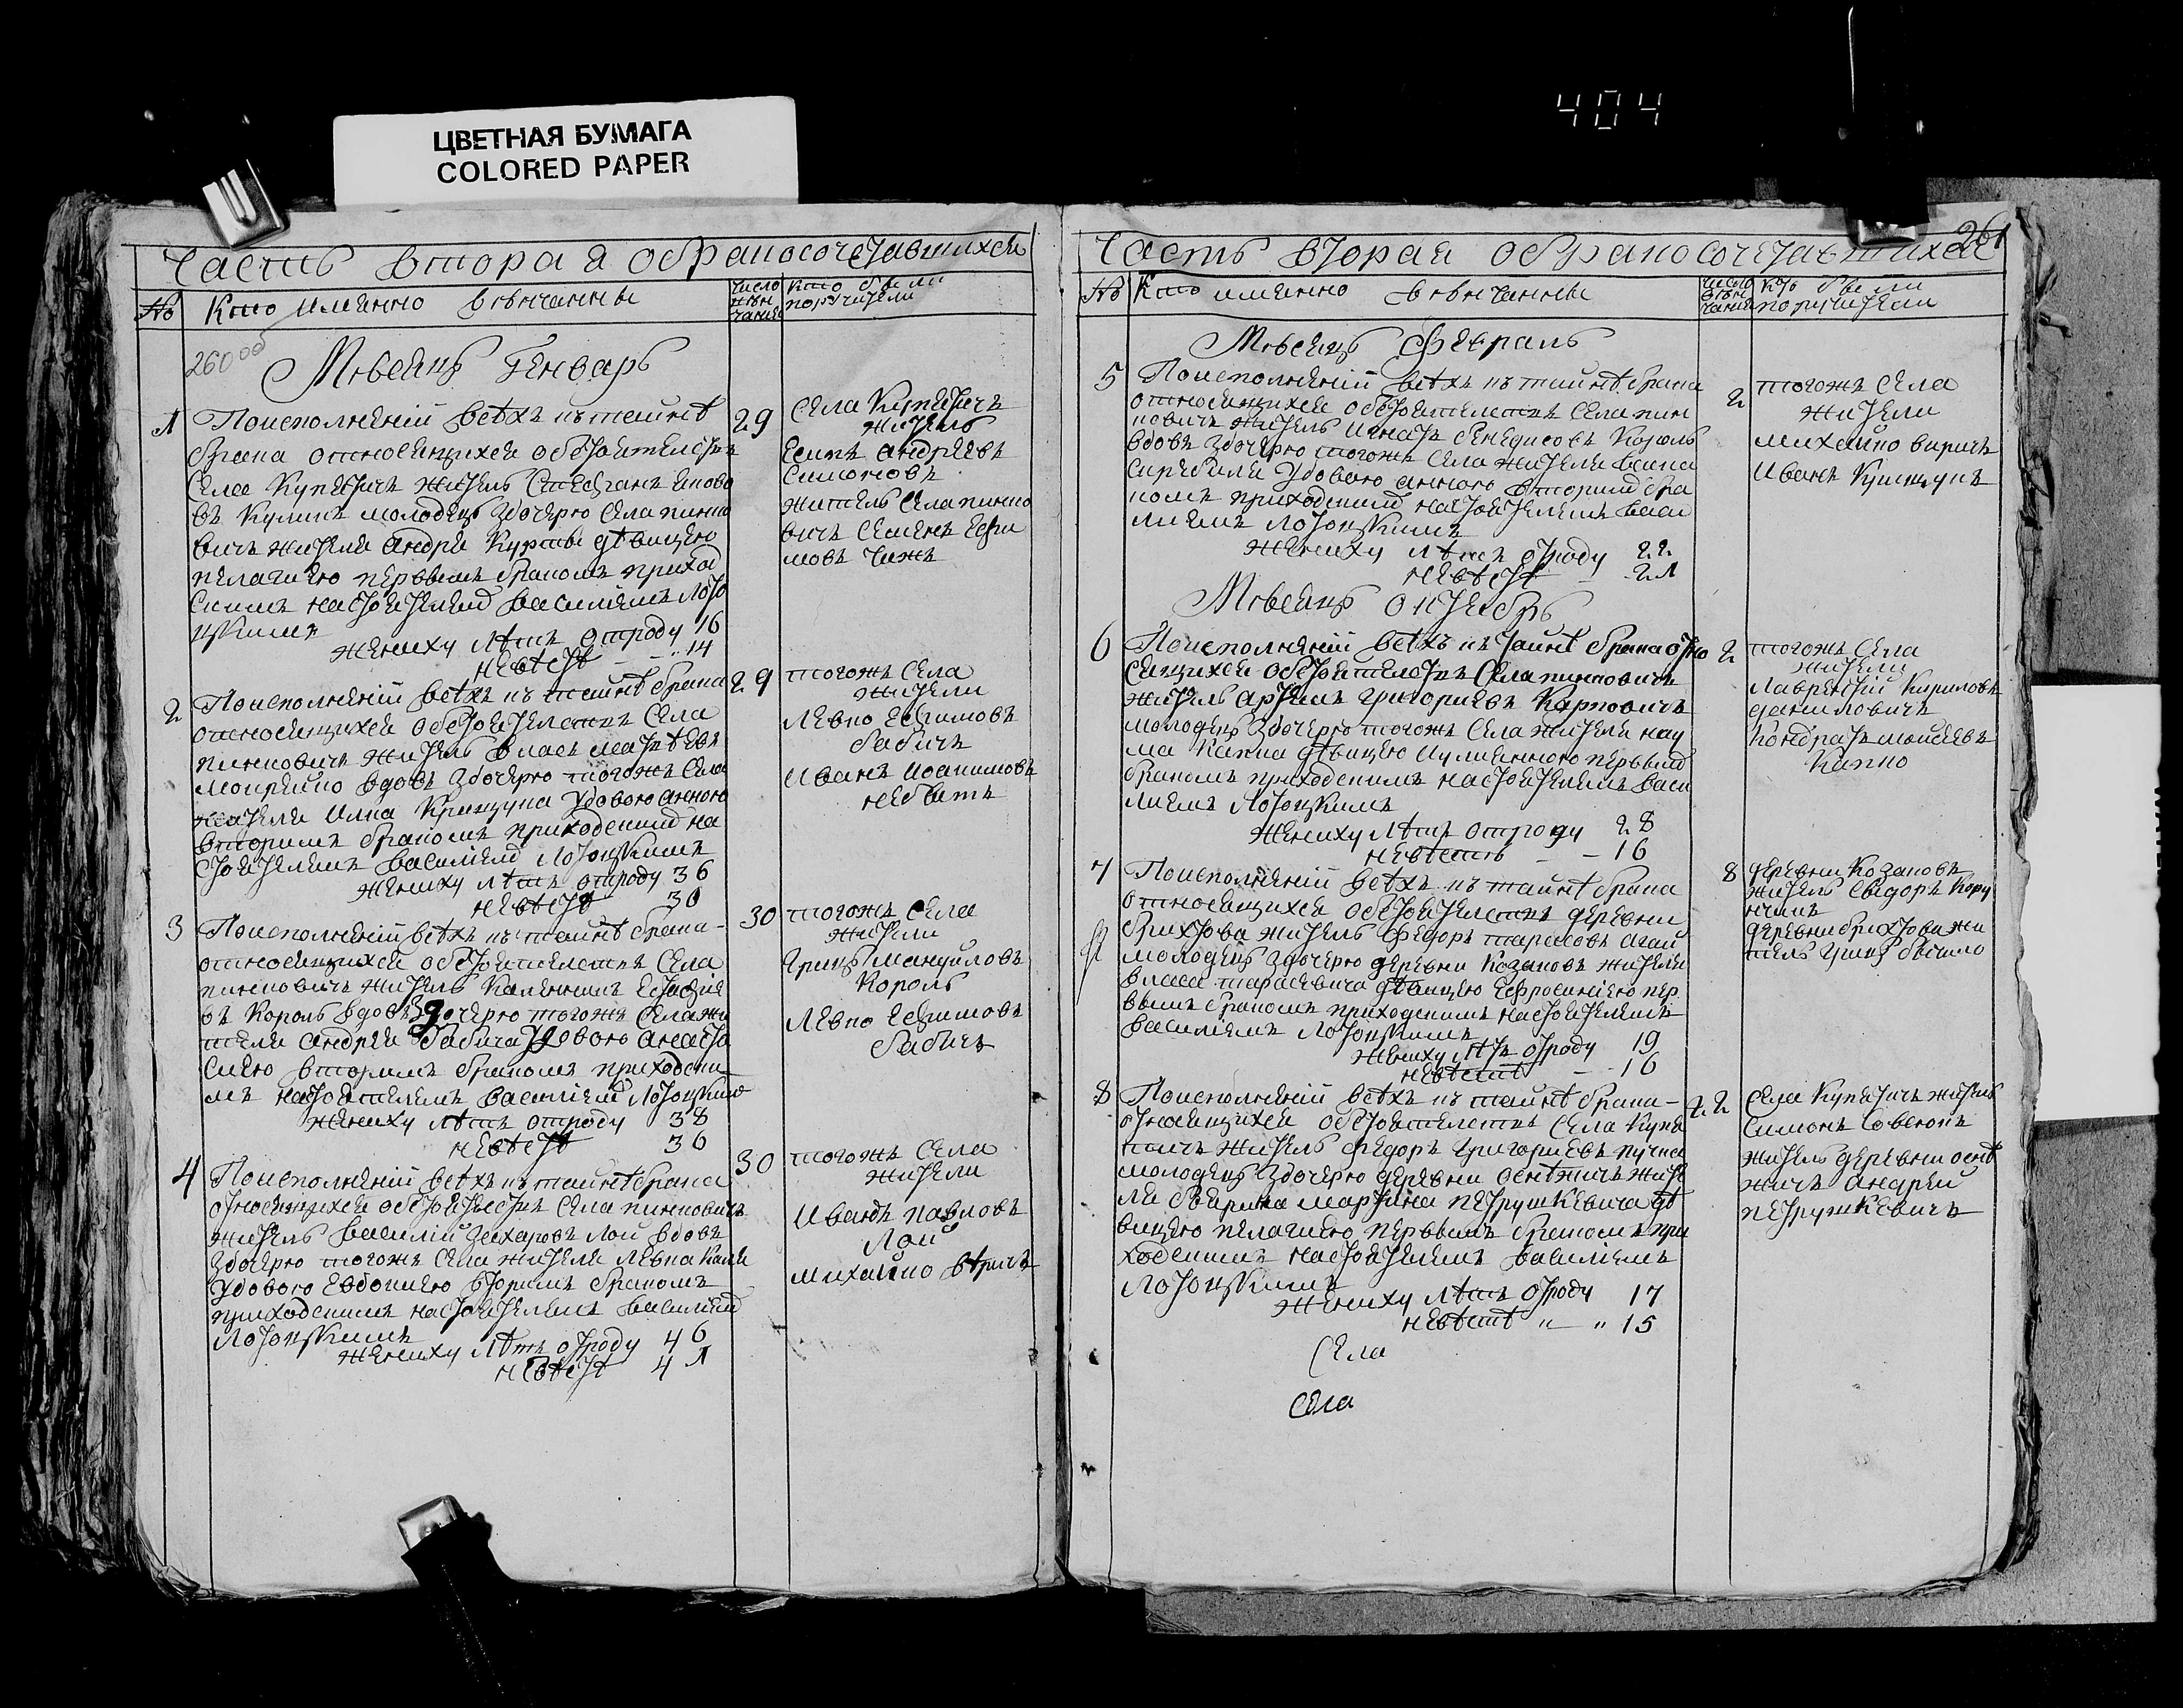 ЦВЕТНАЯ БУМАГА
COLORED PAPER
404
Часть вторая обракосочетавшихся
№
Кто имянно вѣнчанны
число вѣн чания
кто были поручители
260 об
Мѣсяцъ Генварь
1
Поисполнении всѣхъ къ таинѣ
брака относящихся обстоятелстъ
села Купятичъ житель Стефанъ
въ Куликъ молодецъ здочерю села пинко
вичъ жителя Андрея дѣвицею
пелагиею первымъ бракомъ приход
скимъ настоятелемъ василиемъ Лото
цкимъ
жениху лѣтъ отроду 16
невѣстѣ - - 14
29
села Купятичъ
житель
Есипъ андреевъ
Симоновъ
житель села пинко
вичъ Семенъ Ефи
мовъ Чижъ
2
Поисполнении всѣхъ къ таинѣ брака
относящихся обстоятелстъ села
пинковичъ житель власъ матвѣевъ
вдовъ здочерю тогожъ села
жителя Илка Крищуна удовою анною
вторимъ бракомъ приходскимъ на
стоятелемъ василиемъ Лотоцкимъ
жениху лѣтъ отроду 36
невѣстѣ 30
29
тогожъ села
жители
Левко Ефимовъ
бабичъ
Иванъ Иоакимовъ
небытъ
3
Поисполнении всѣхъ къ таинѣ брака-
относящихся обстоятелстъ села
пинковичъ житель Калениkъ Естафие
въ Король вдовъ здочерю тогожъ села жи
теля андрея бабича удовою анаста
сиею вторимъ бракомъ приходски
мъ настоятелемъ василиемъ Лотоцким
жениху лѣтъ отроду 38
невѣстѣ 36
30
тогожъ села
жители
Грицъ Мануйловъ
Король
Левко Ефимовъ
бабичъ
4
Поисполнении всѣхъ къ таинѣ брака
относящихся обстоятелстъ села пинковичъ
житель василий захаровъ Лой вдовъ
здочерю тогожъ села жителя Левка
удовою Евдокиею вторимъ бракомъ
приходскимъ настоятелемъ василиемъ
Лотоцкимъ
жениху лѣтъ отроду 46
невѣстѣ 41
30
тогожъ села
жители
Иванъ павловъ
Лой
михайло
Часть вторая обракосочетавшихся
261
№
Кто имянно вѣнчанны
число вѣн чания
кто были поручители
Мѣсяцъ Февраль
5
Поисполнении всѣхъ къ таинѣ брака
относящихся обстоятелстъ села пин
ковичъ житель Игнатъ бенедисовъ Король
вдовъ здочерю тогожъ села жителя
удовою анною вторимъ бра
комъ приходскимъ настоятелемъ васи
лиемъ Лотоцкимъ
жениху лѣтъ отроду 22
невѣстѣ - 21
2
тогожъ села
жители
михайло
Иванъ Крищунъ
Мѣсяцъ октябрь
6
Поисполнении всѣхъ къ таинѣ брака отно
сящихся обстоятелстъ села пинковичъ
житель артемъ григориевъ Карповичъ
молодецъ здочерю тогожъ села жителя нау
ма Капка дѣвицею иулианною первымъ
бракомъ приходскимъ настоятелемъ васи
лиемъ Лотоцкимъ
жениху лѣтъ отроду 28
невѣстѣ - - 16
2
тогожъ села
жители
Лаврентий Кириловъ
даниловичъ
Кондратъ моисѣевъ
Капко
7
Поисполнении всѣхъ къ таинѣ брака
относящихся обстоятелстъ деревни
жителъ федоръ тарасовъ
молодецъ здочерю деревни Козаковъ жителя
власа тарасевича дѣвицею Ефросиниею пер
вымъ бракомъ приходскимъ настоятелемъ
василиемъ Лотоцкимъ
жениху лѣтъ отроду 19
невѣстѣ - - 16
8
деревни Козаковъ
житель
деревни жи
тель
8
Поисполнении всѣхъ къ таинѣ брака-
относящихся обстоятелстъ села Купя
тичъ житель федоръ григориевъ
молодецъ здочерю деревни осятничъ жите
ля мартина петрушкевича дѣ
вицею пелагиею первымъ бракомъ при
ходскимъ настоятелемъ василиемъ
Лотоцкимъ
жениху лѣтъ отроду 17
невѣстѣ " " 15
22
села Купятичъ житель
Симонъ
житель деревни
андрей
петрушкевичъ
Села
Села